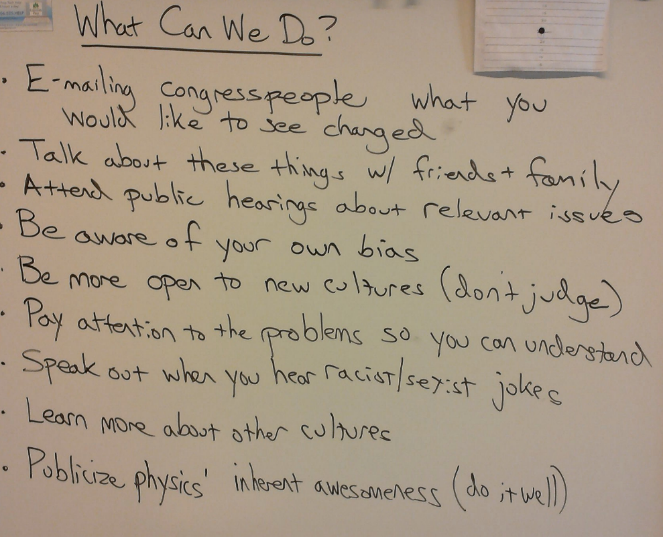 What Can We Do?
• E-mailing congresspeople what you
would like to see changed
• Talk about these things w/ friends + family
• Attend public hearings about relevant issues
• Be aware of your own bias
• Be more open to new cultures (don't judge)
• Pay attention to the problems so you can understand
• Speak out when you hear racist/sexist jokes
• Learn more about other cultures
• Publicize physics' inherent awesomeness (do it well)